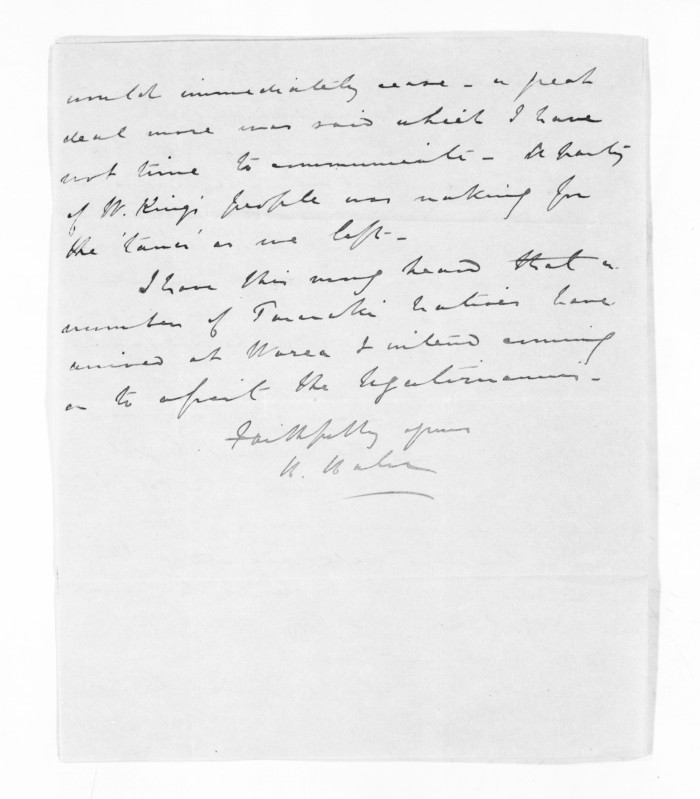 would immediately cease - a great
deal more was said which I have
not time to communicate - A party
of W. King's people was making for
the 'taua' as we left -
I have this mng heard that a
number of Taranaki natives have
arrived at Warea & intend coming
on to assist the Ngatimaniri -
Faithfully yours
H. Halse